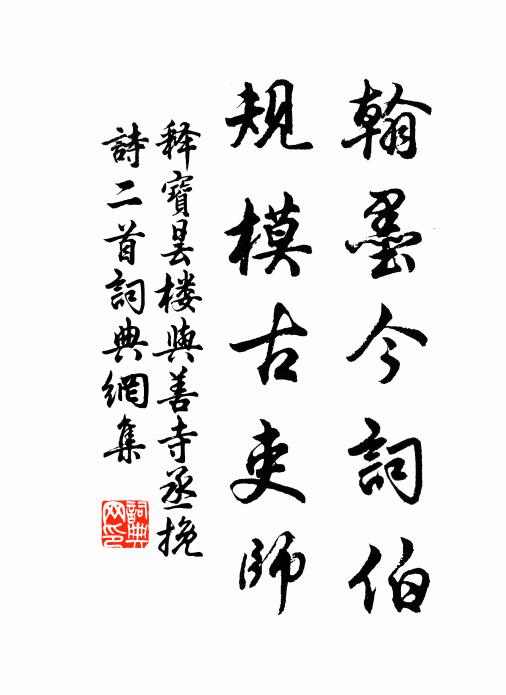 翰墨今詞伯
規模古吏師
释寶曇楼與善寺丞挽
詩二首詞典網集
詞典
网印